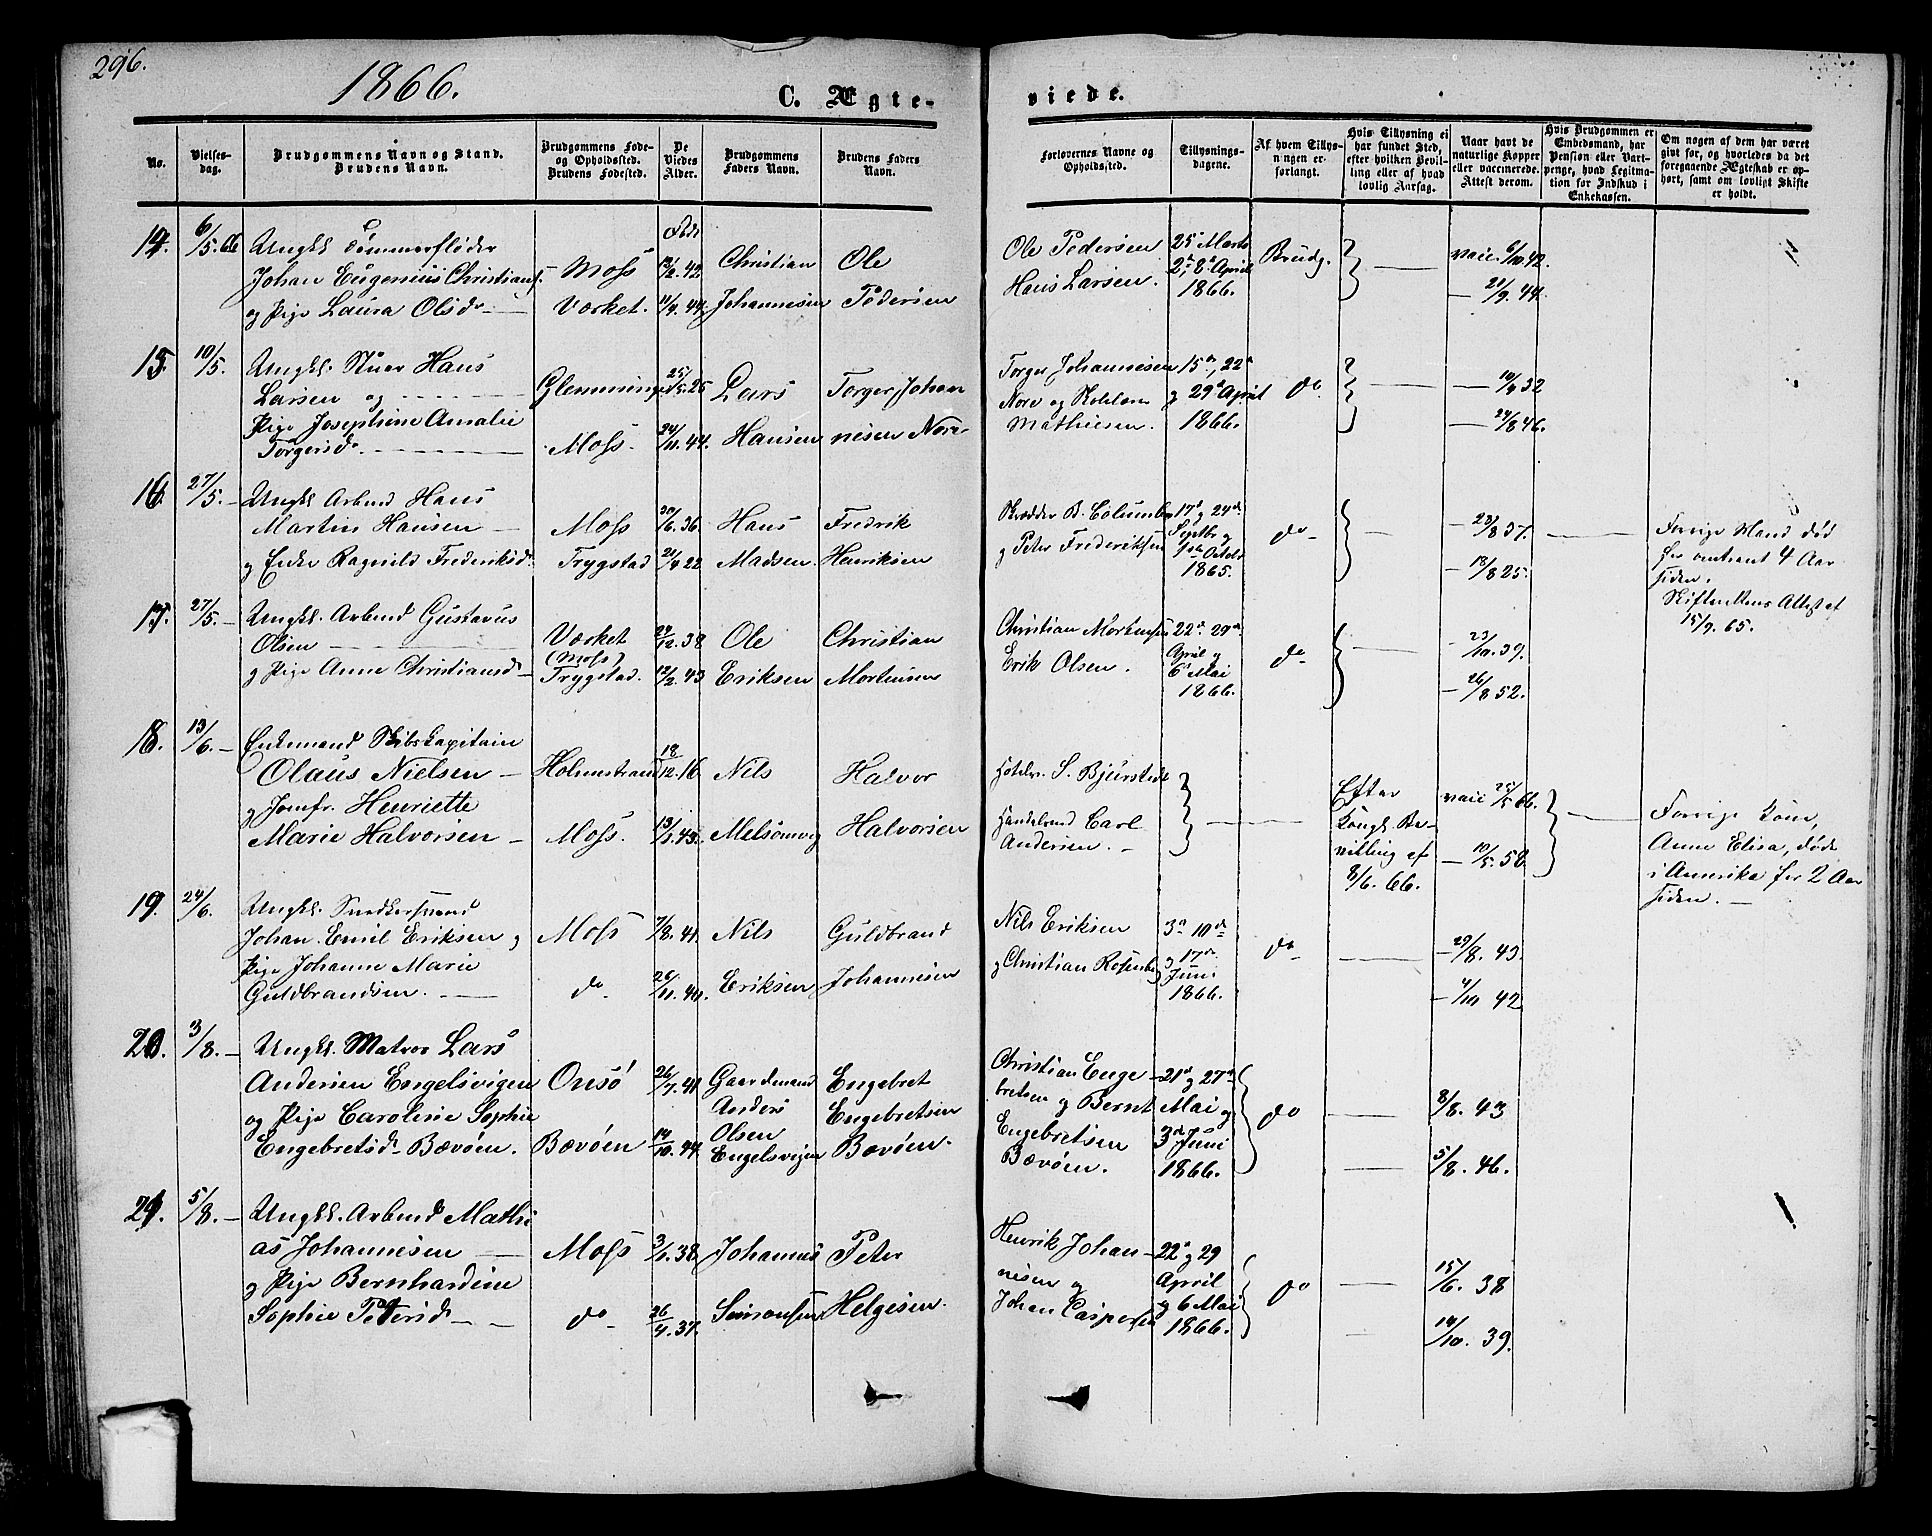 296.
1866.
C. Ægteviede.
No.
Vielsesdag.
Brudgommens Navn og Stand.
Brudens Navn.
Brudgommens Fødeog Opholdssted.
Brudens Fødested.
De
Viedes
Alder.
Brudgommens
Faders Navn.
Brudens Faders
Navn.
Forlovernes Navne og
Opholdssted.
Tillysningsdagene.
Af hvem Tillysningen er
forlangt.
Hvis Tillysning ei
har fundet Sted,
efter hvilken Bevilling eller af hvad
lovlig Aarsag.
Naar havt de
naturlige Kopper
eller vaccinerede.
Attest derom.
Hvis Brudgommen er
Embedsmand, har
Pension eller Vartpenge, hvad Legitimation for Indskud i
Enkekassen.
Om nogen af dem har været
givt før, og hvorledes da det
foregaaende Ægteskab er ophørt, samt om lovligt Skifte
er holdt.
14. 6/5. 66 Ungkl. Tømmerfløder
Johan Eugenius Christians.
og Pige Laura Olsd.
Moss
Værket.
Født
42.
11/9. 44.
Christian
Johannesen
Ole
Pedersen
Ole Pedersen
Hans Larsen.
25 Marts
2d, 8d April
1866.
Brudg.
vacc. 6/10 42.
21/9. 44.
15. 10/5. Ungkl. Stuer Hans
Larsen og
Pige Josephine Amalie
Torgersd.
Glemminge
Moss.
25/5. 25
24/11. 44.
Lars
Hansen
Torger Johannesen Nore
Torger Johannesen
Nore og
Mathiesen.
15d, 22d
og 29d April
1866.
do.
32
24/8 46.
16. 27/5. Ungkl. Arbmd Hans
Martin Hansen
og Enke Ragnild Frederiksd.
Moss
Trygstad
20/6. 36
21/9 22
Hans
Madsen
Fredrik
Henriksen
Skrædder B. Columbus
og Peter Frederiksen
17d og 24de
Septbr og
1ste Octobr
1865.
do
23/8 37.
18/8 25.
Forrige Mand død
for omtrent 4 Aar
siden.
Skifterettens Attest af
15/9. 65.
17. 27/5. Ungkl. Arbmd Gustavus
Olsen
og Pige Anne Christiansd
Værket
(Moss)
Trygstad.
24/12. 38
12/2. 43
Ole
Eriksen
Christian
Mortensen
Christian Mortensen
Erik Olsen.
22d 29de
April og
6d Mai
1866.
do
23/10. 39.
26/8 52.
18. 13/6. Enkemand Skibskapitain
Olaus Nielsen
og Jomfr. Henriette
Marie Halvorsen
Holmestrand
Moss.
18/12. 16
43.
Nils
Melsomvig
Halvor
Halvorsen
Hotelv. S. Bjurstedt
Handelsmd Carl
Andersen.
Efter
Kongl. Bevilling af
8/6. 66.
vacc 25/5 66.
10/5. 58.
Forrige Kone,
Anne Elisa, døde
i Amerika for 2 Aar
siden.
19. 24/6. Ungkl. Snedkersvend
Johan Emil Eriksen og
Pige Johanne Marie
Guldbrandsen.
Moss
do
7/8. 41.
26/11. 40.
Nils
Eriksen
Guldbrand
Johannesen
Nils Eriksen
og Christian Rosenb
3d 10de
og 17de
Juni
1866.
do
29/8. 43.
4/10 42
20. 3/8. Ungkl. Matros Lars
Andersen Engelsvigen
og Pige Caroline Sophie
Engebretsd. Bævøen.
Onsø
Bævøen
26/7. 41
14/10. 44.
Gaardmand
Anders
Olsen
Engelsvigen
Engebret
Engebretsen
Bævøen.
Christian Engebretsen og Bernt
Engebretsen
Bævøen.
21d og 27d
Mai og
3d Juni
1866.
do
8/8. 43
5/8. 46.
21. 5/8. Ungkl. Arbmd Mathias Johannesen
og Pige Bernhardine
Sophie Petersd
Moss
do
38
26/4. 37.
Johannes
Simonsen
Peter
Helgesen.
Henrik Johannesen og
Johan Caspersen
22d og 29
April
og 6 Mai
1866.
do
15/6. 38
14/10. 39.